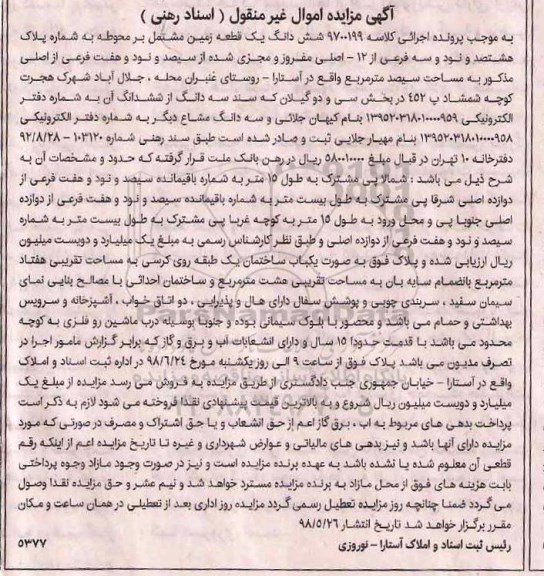 آگهی مزایده اموال غیر منقول ( اسناد رهنی )
به موجب پرونده اجرائی کلاسه ۹۷۰۰۱۹۹ شش دانگ یک قطعه زمین مشتمل بر محوطه به شماره پلاک
هشتصد و نود و سه فرعی از ۱۲ - اصلی مفروز و مجزی شده از سیصد و نود و هفت فرعی از اصلی
مذکور به مساحت سیصد مترمربع واقع در آستارا - روستای عنبران محله ، جلال آباد شهرک هجرت
کوچه شمشاد پ ۴۵۲ در بخش سی و دو گیلان که سند سه دانگ از ششدانگ آن به شماره دفتر
الکترونیکی ۱۳۹۵۲۰۳۱۸۰۱۰۰۰۰۹۵۹ بنام کیهان جلائی و سه دانگ مشاع دیگر به شماره دفتر الکترونیکی
۱۳۹۵۲۰۳۱۸۰۱۰۰۰۰۹۵۸ بنام مهیار جلایی ثبت و صادر شده است طبق سند رهنی شماره ۱۰۳۱۲۰ - ۹۲/۸/۲۸
دفترخانه ۱۰ تهران در قبال مبلغ ۵۸۰۰۱۰۰۰۰ ریال در رهن بانک ملت قرار گرفته که حدود و مشخصات آن به
شرح ذیل می باشد : شمالا پی مشترک به طول ۱۵ متر به شماره باقیمانده سیصد و نود و هفت فرعی از
دوازده اصلی شرقا پی مشترک به طول بیست متر به شماره باقیمانده سیصد و نود و هفت فرعی از دوازده
اصلی جنوبا پی و محل ورود به طول ۱۵ متر به کوچه غربا پی مشترک به طول بیست متر به شماره
سیصد و نود و هفت فرعی از دوازده اصلی و طبق نظر کارشناس رسمی به مبلغ یک میلیارد و دویست میلیون
ریال ارزیابی شده و پلاک فوق به صورت یکباب ساختمان یک طبقه روی کرسی به مساحت تقریبی هفتاد
مترمربع بانضمام سایه بان به مساحت تقریبی هشت مترمربع و ساختمان احداثی با مصالح بنایی نمای
سیمان سفید ، سربندی چوبی و پوشش سفال دارای هال و پذیرایی ، دو اتاق خواب ، آشپزخانه و سرویس
بهداشتی و حمام می باشد و محصور با بلوک سیمانی بوده و جنوبا بوسیله درب ماشین رو فلزی به کوچه
محدود می باشد با قدمت حدودا ۱۵ سال و دارای انشعابات آب و برق و گاز که برابر گزارش مامور اجرا در
تصرف مدیون می باشد پلاک فوق از ساعت ۹ الی روز یکشنبه مورخ ۹۸/۶/۲۴ در اداره ثبت اسناد و املاک
واقع در آستارا - خیابان جمهوری جنب دادگستری از طریق مزایده به فروش می رسد مزایده از مبلغ یک
میلیارد و دویست میلیون ریال شروع و به بالاترین قیمت پیشنهادی نقدا فروخته می شود لازم به ذکر است
پرداخت بدهی های مربوط به آب ، برق گاز اعم از حق انشعاب و یا حق اشتراک و مصرف در صورتی که مورد
مزایده دارای آنها باشد و نیز بدهی های مالیاتی و عوارض شهرداری و غیره تا تاریخ مزایده اعم از اینکه رقم
قطعی آن معلوم شده یا نشده باشد به عهده برنده مزایده است و نیز در صورت وجود مازاد وجوه پرداختی
بابت هزینه های فوق از محل مازاد به برنده مزایده مسترد خواهد شد و نیم عشر و حق مزایده نقدا وصول
می گردد ضمنا چنانچه روز مزایده تعطیل رسمی گردد مزایده روز اداری بعد از تعطیلی در همان ساعت و مکان
مقرر برگزار خواهد شد تاریخ انتشار ۹۸/۵/۲۶
رئیس ثبت اسناد و املاک آستارا - نوروزی
۵۳۷۷